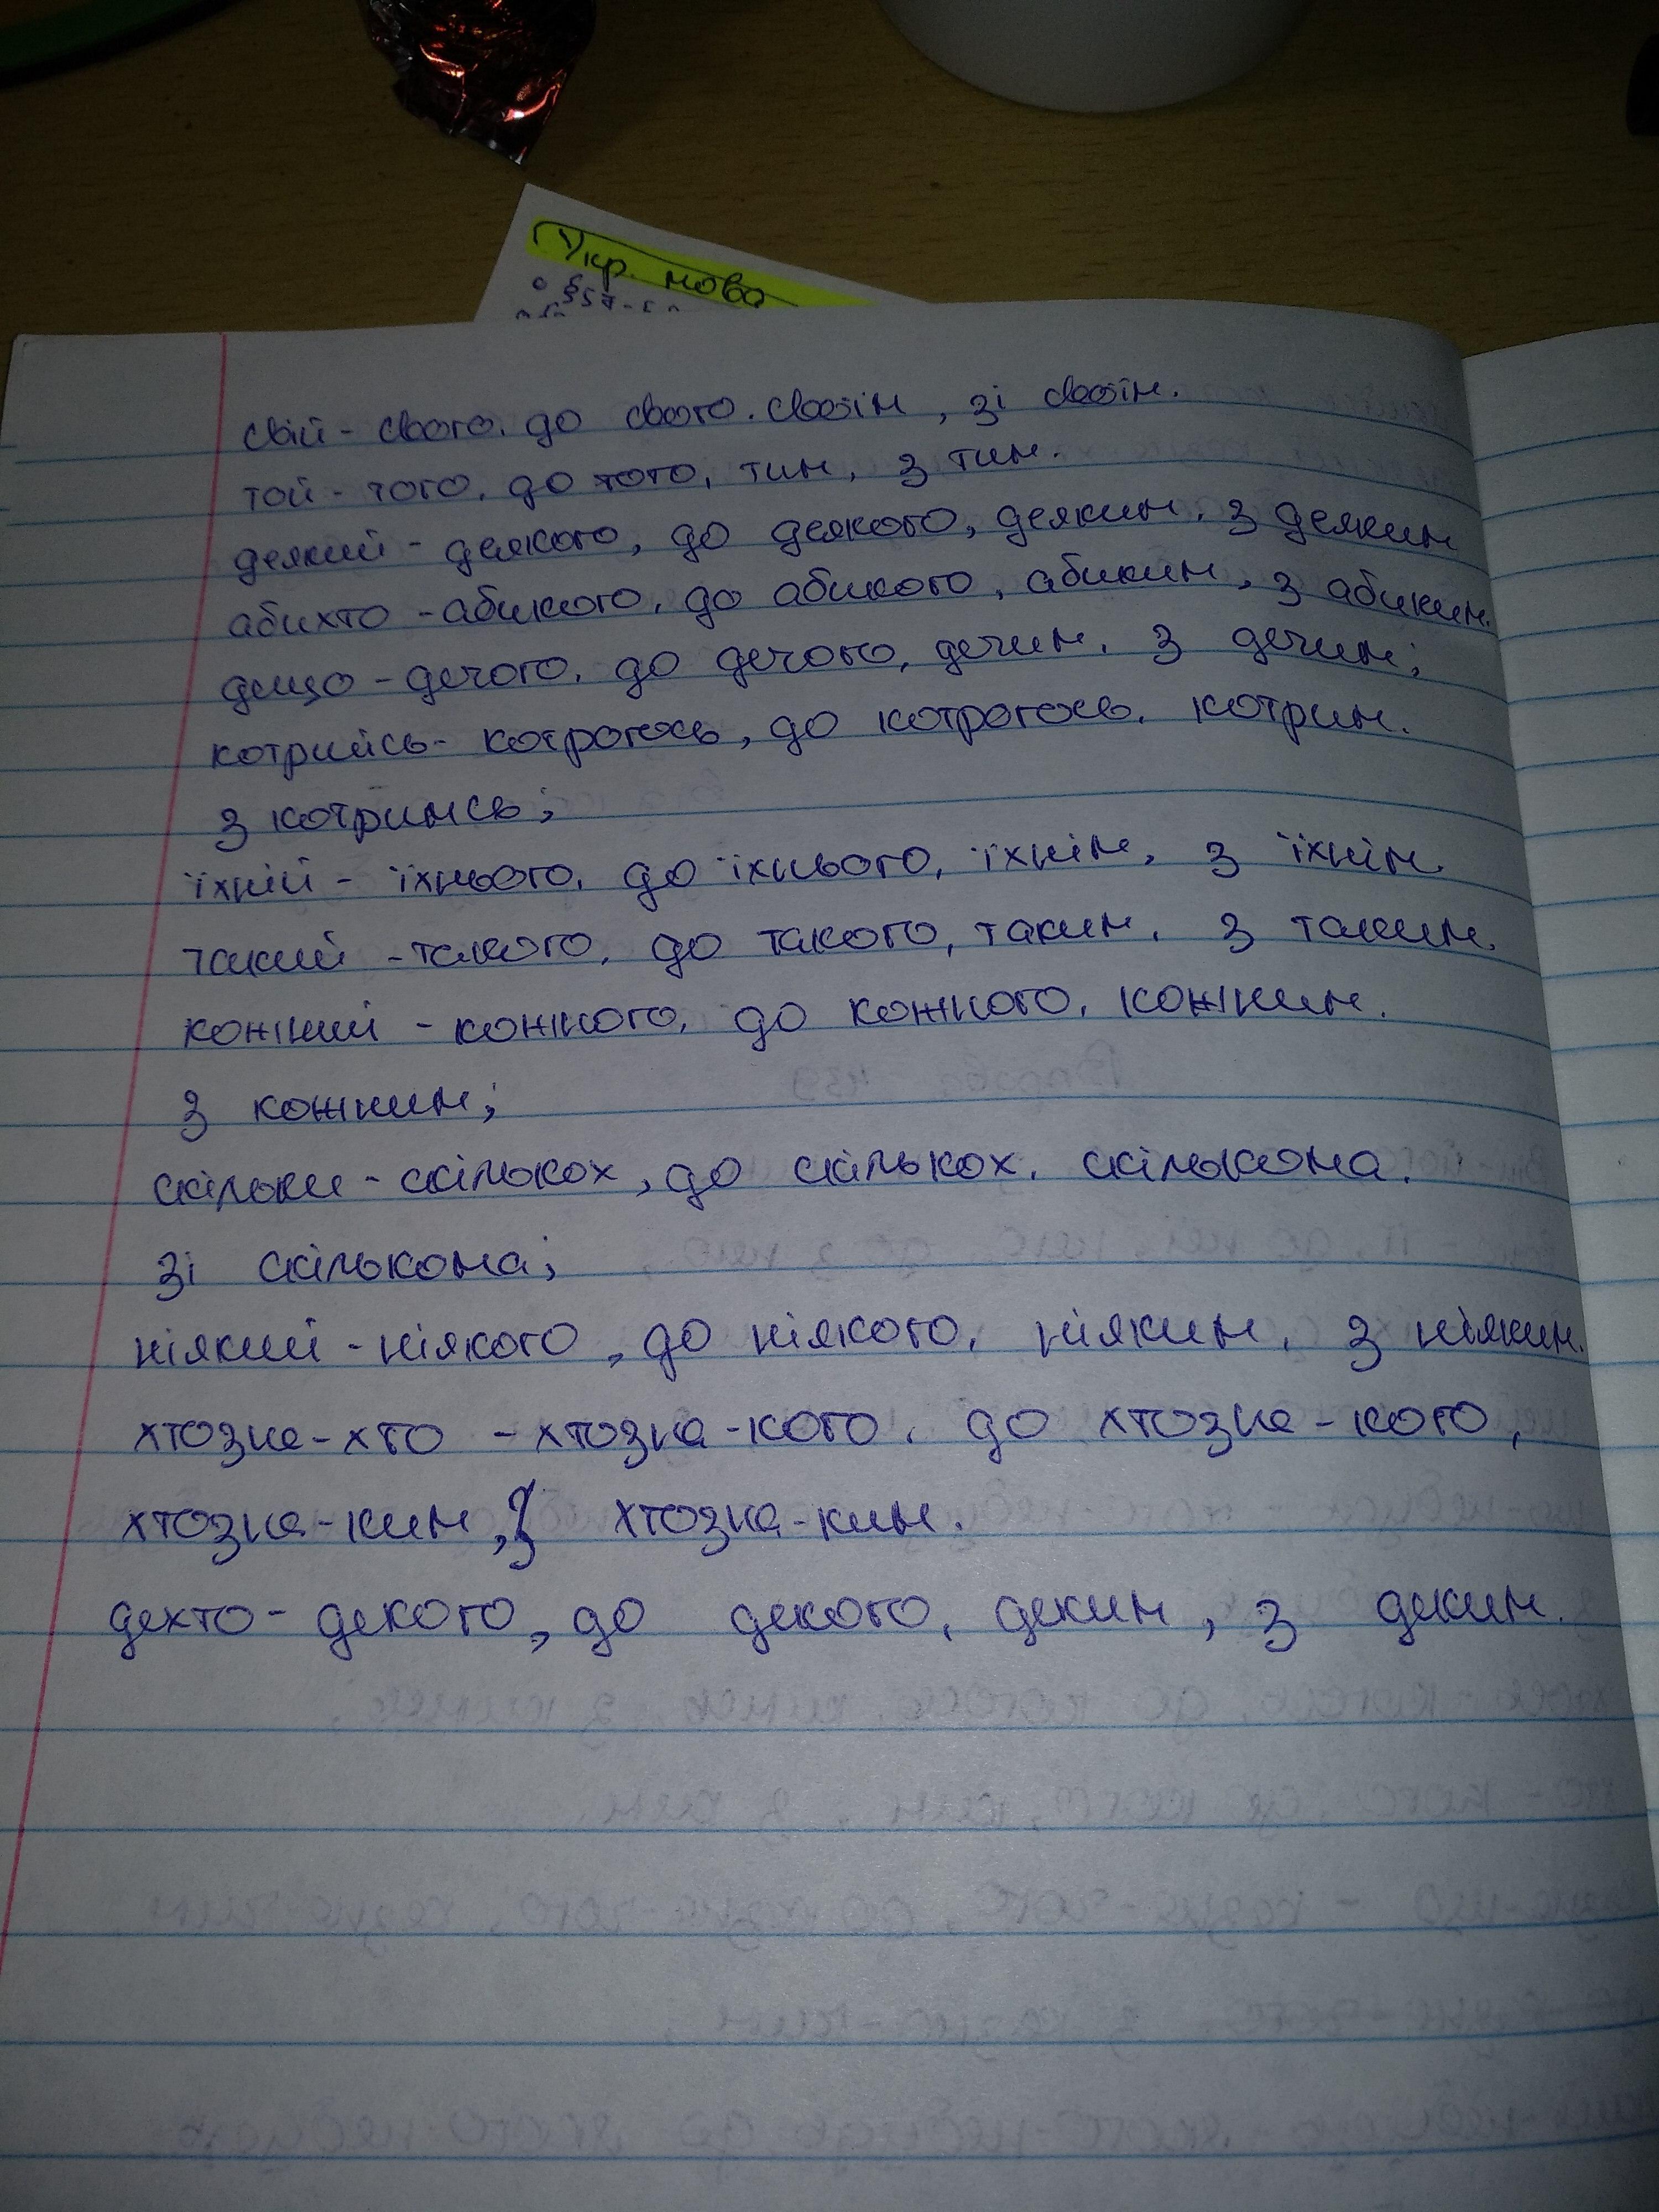 Укр. мова
§57-
свій - свого, до свого, своїм, зі своїм.
той - того, до того, тим, з тим.
деякий - деякого, до деякого, деяким, з деяким
абихто - абикого, до абикого, абиким, з абиким.
дещо - дечого, до дечого, дечим, з дечим;
котрийсь - котрогось, до котрогось, котрим.
з котримсь;
їхній - їхнього, до їхнього, їхнім, з їхнім.
такий - такого, до такого, таким, з таким.
кожний - кожного, до кожного, кожним.
з кожним;
скільки - скількох, до скількох, скількома.
зі скількома;
ніякий - ніякого, до ніякого, ніяким, з ніяким.
хтозна-хто - хтозна-кого, до хтозна-кого,
хтозна-ким, з хтозна-ким.
дехто - декого, до декого, деким, з деким.